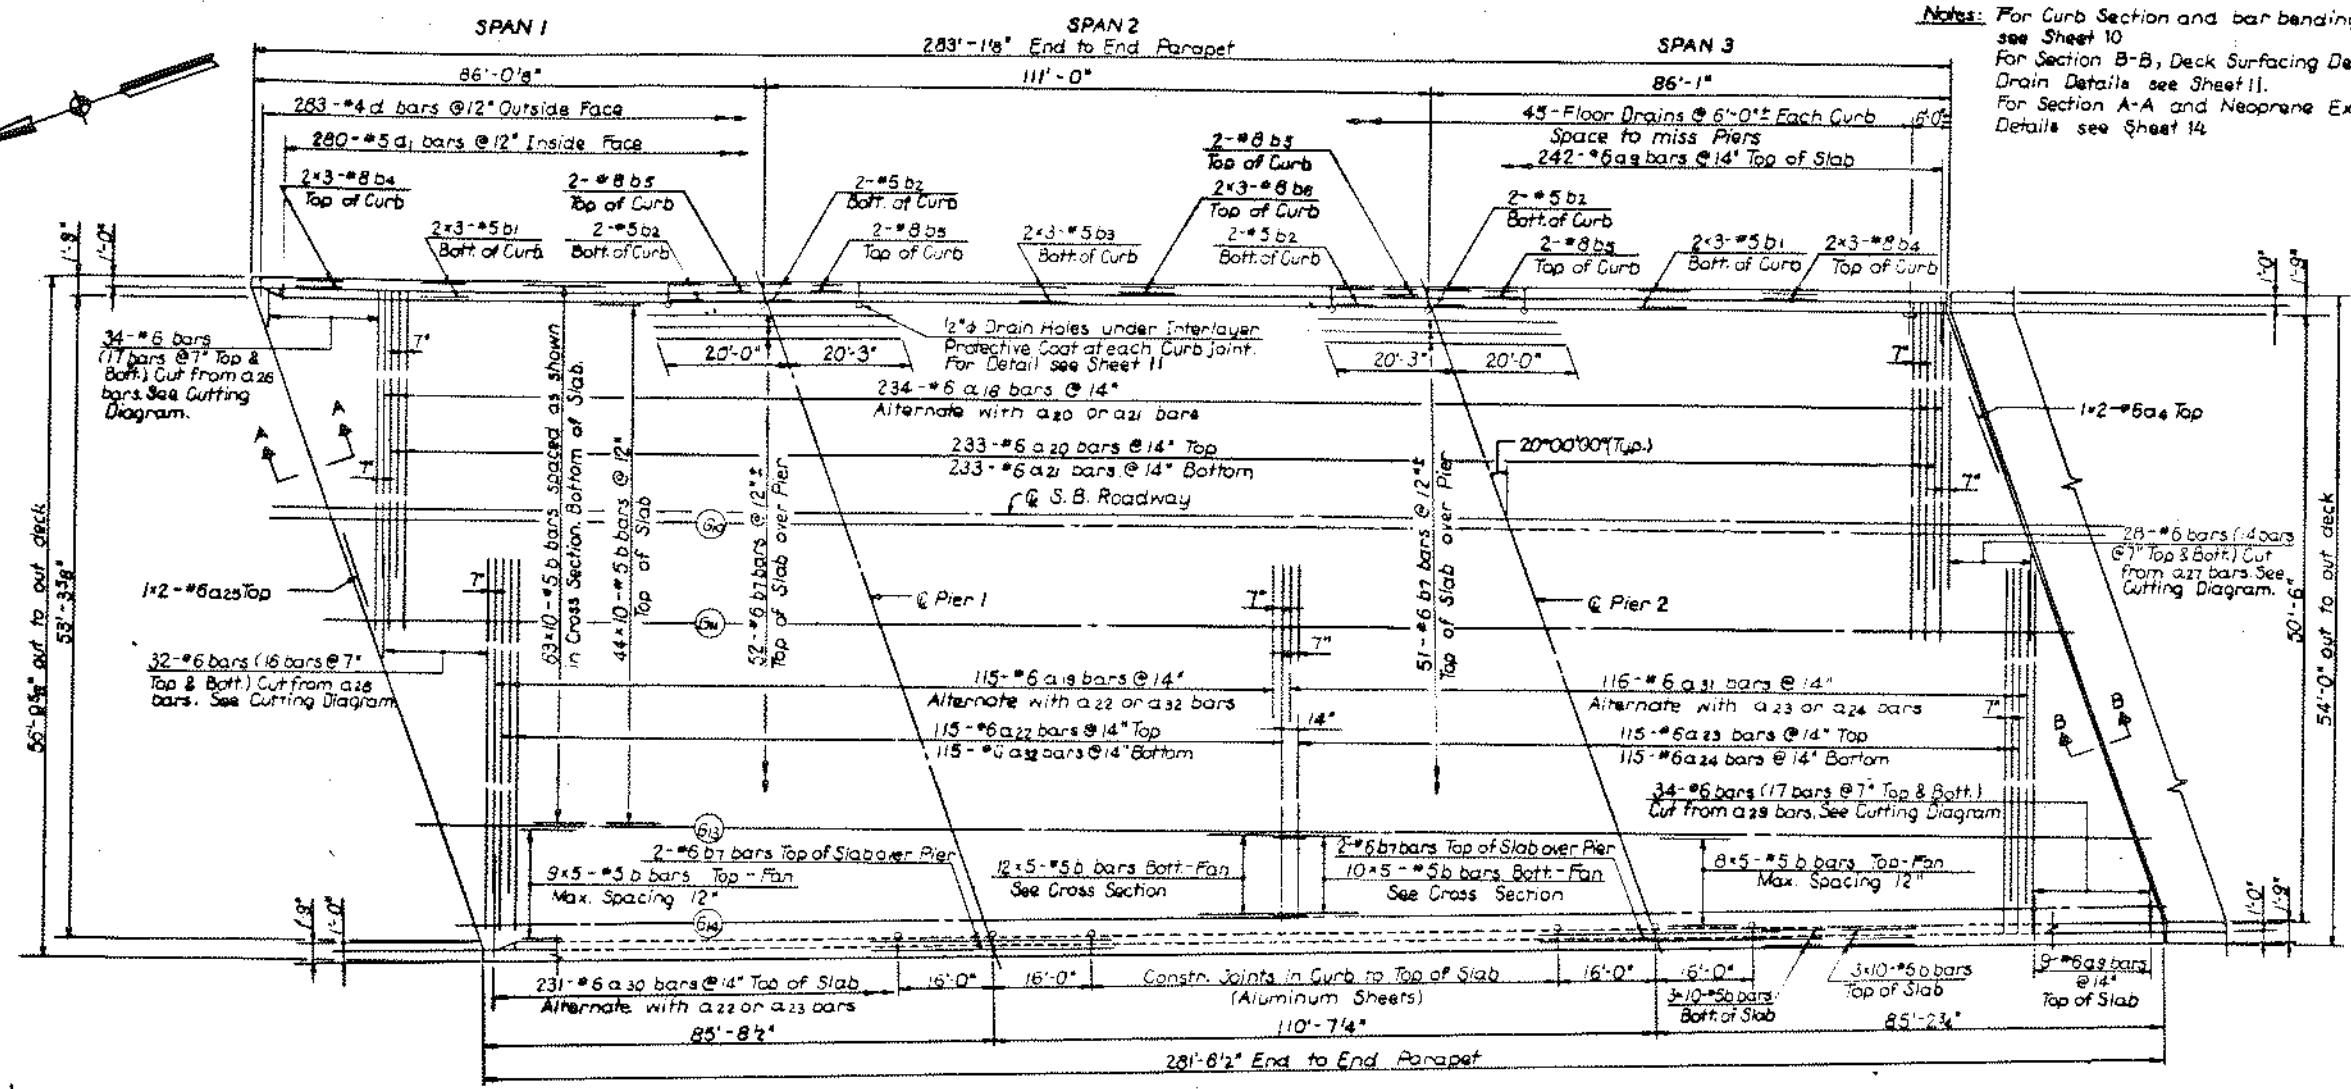 SPAN 1
SPAN 2
SPAN 3
283'-1⅛" End to End Parapet
86'-0⅛"
111'-0"
86'-1"
Notes: For Curb Section and bar bending
see Sheet 10
For Section B-B, Deck Surfacing De
Drain Details see Sheet 11.
For Section A-A and Neoprene Ex
Details see Sheet 14
283-#4 d bars @12" Outside Face
280-#5 d1 bars @12" Inside Face
45-Floor Drains @ 6'-0"± Each Curb
Space to miss Piers
6'-0"±
242-#6 a9 bars @14" Top of Slab
2×3-#8 b4
Top of Curb
2-#8 b5
Top of Curb
2-#5 b2
Bott. of Curb
2-#8 b5
Top of Curb
2×3-#8 b6
Top of Curb
2-#5 b2
Bott. of Curb
2×3-#5 b1
Bott. of Curb
2-#5 b2
Bott. of Curb
2-#8 b5
Top of Curb
2×3-#5 b3
Bott. of Curb
2-#5 b2
Bott. of Curb
2-#8 b5
Top of Curb
2×3-#5 b1
Bott. of Curb
2×3-#8 b4
Top of Curb
1'-9"
1'-0"
1'-0"
1'-9"
34-#6 bars
(17 bars @7" Top &
Bott.) Cut from a26
bars. See Cutting
Diagram.
7"
½"ϕ Drain Holes under Interlayer
Protective Coat at each Curb joint.
For Detail see Sheet 11
20'-0"
20'-3"
20'-3"
20'-0"
7"
234-#6 a18 bars @ 14"
Alternate with a20 or a21 bars
1×2-#6 a4 Top
A
A
233-#6 a20 bars @ 14" Top
233-#6 a21 bars @ 14" Bottom
20°00'00"(Typ.)
7"
7"
℄ S.B. Roadway
63×10-#5 b bars spaced as shown
in Cross Section. Bottom of Slab.
44×10-#5 b bars @ 12"
Top of Slab
52-#6 b7 bars @ 12"±
Top of Slab over Pier
51-#6 b7 bars @ 12"±
Top of Slab over Pier
56'-0⅝" out to out deck
53'-3⅝"
28-#6 bars (14 bars
@7" Top & Bott.) Cut
from a27 bars. See
Cutting Diagram.
50'-6"
54'-0" out to out deck
1×2-#6 a25 Top
7"
℄ Pier 1
7"
℄ Pier 2
G11
7"
32-#6 bars (16 bars @ 7"
Top & Bott.) Cut from a28
bars. See Cutting Diagram
115-#6 a19 bars @ 14"
Alternate with a22 or a32 bars
116-#6 a31 bars @ 14"
Alternate with a23 or a24 bars
7"
B
B
115-#6 a22 bars @ 14" Top
115-#6 a32 bars @ 14" Bottom
14"
115-#6 a23 bars @ 14" Top
115-#6 a24 bars @ 14" Bottom
34-#6 bars (17 bars @ 7" Top & Bott.)
Cut from a29 bars. See Cutting Diagram
G13
2-#6 b7 bars Top of Slab over Pier
9×5-#5 b bars Top - Fan
Max. Spacing 12"
12×5-#5 b bars Bott.-Fan
See Cross Section
2-#6 b7 bars Top of Slab over Pier
10×5-#5 b bars Bott.-Fan
See Cross Section
8×5-#5 b bars Top-Fan
Max. Spacing 12"
G14
1'-9"
1'-0"
1'-0"
1'-9"
231-#6 a30 bars @ 14" Top of Slab
Alternate with a22 or a23 bars
16'-0"
16'-0"
Constr. Joints in Curb to Top of Slab
(Aluminum Sheets)
16'-0"
16'-0"
3×10-#5 b bars
Bott. of Slab
3×10-#5 b bars
Top of Slab
9-#6 a9 bars
@ 14"
Top of Slab
85'-8½"
110'-7¼"
85'-2¾"
281'-6½" End to End Parapet